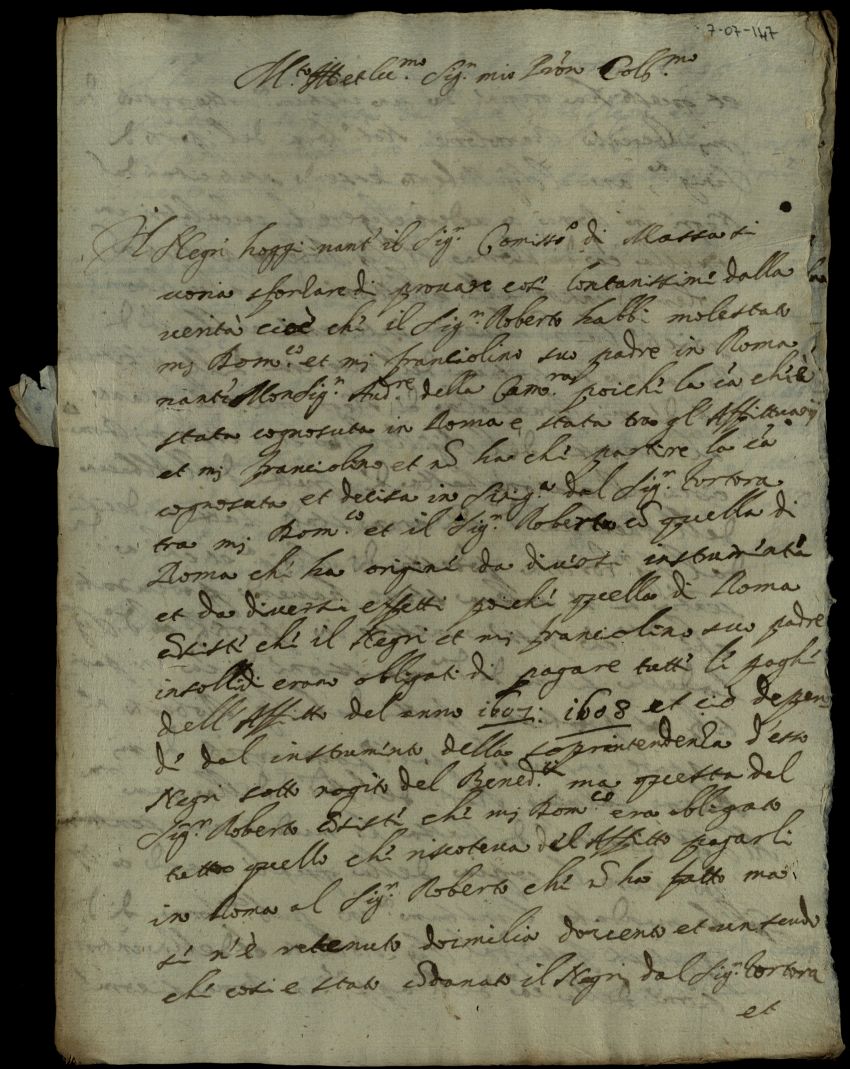 7-07-147
M.to Ill et ecc.mo Sig.r mio Prōn Coll.mo
Il Negri hoggi nanti il Sig.r Comiss.o di Massa si
voria sforzare di provare cose lontanissime dalla
verità cioè che il Sig.r Roberto habbi molestato
mj Dom.co et mj franciolino suo padre in Roma
nanti Monsig.r Aud.re della Cam.ra poiche la cā che è
stata cognosuta in Roma e stata tra gl'Affittuarij
et mj franciolino et nō ha che partire la cā
cognosuta et decisa in Sinig.a dal Sig.r Tortora
tra mj Dom.co et il Sig.r Roberto cō quella di
Roma che ha origine da diversi instrumenti
et da diversi effetti poiche quella di Roma
cōsiste che il Negri et mj franciolino suo padre
insollidi erano obligati di pagare tutte le paghe
dell'Affitto del anno 1607: 1608 et ciò depen
de dal instrumento della soprintendenza d'esso
Negri sotto rogito del Bened.ti ma questa del
Sig.r Roberto cōsiste che mj Dom.co era obligato
tutto quello che riscoteva del Affitto pagarli
in Roma al Sig.r Roberto che nō ha fatto ma
si n'è retenuto doimilia doicento et un scudo
che cosi e stato cōdanato il Negri dal Sig.r Tortora
et